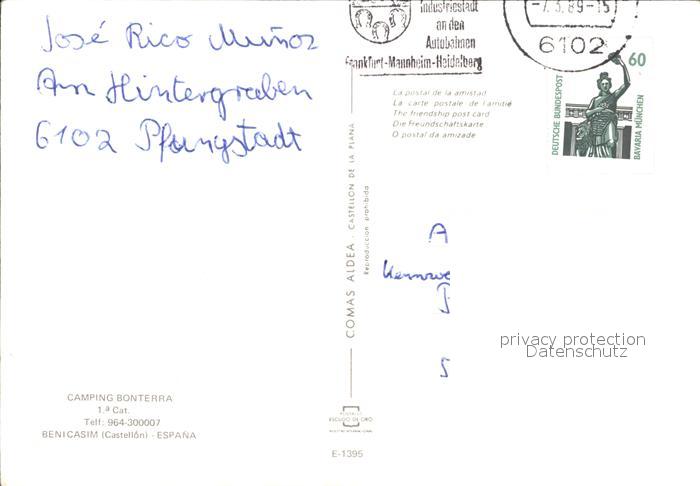 José Rico Muñoz
Am Hintergraben
6102 Pfungstadt
CAMPING BONTERRA
1.ª Cat.
Telf: 964-300007
BENICASIM (Castellón) - ESPAÑA
COMAS ALDEA - CASTELLON DE LA PLANA
Reproducción prohibida
ESCUDO DE ORO
E-1395
Industriestadt
an den
Autobahnen
Frankfurt-Mannheim-Heidelberg
-7.3.89-15
6102
La postal de la amistad
La carte postale de l'amitié
The friendship post card
Die Freundschaftskarte
O postal da amizade
60
DEUTSCHE BUNDESPOST
BAVARIA MÜNCHEN
A
S
privacy protection
Datenschutz